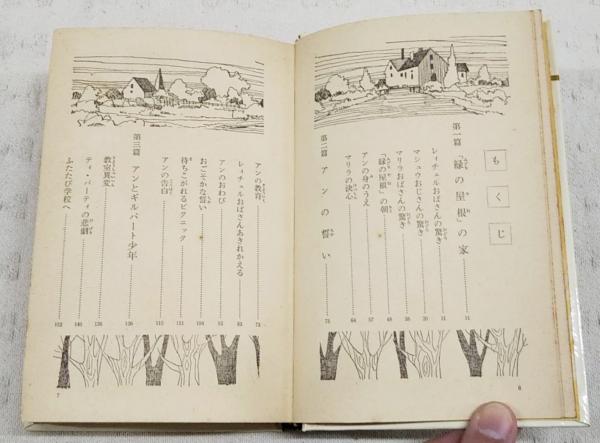 もくじ
第一篇 「緑の屋根」の家 11
レィチェルおばさんの驚き 11
マシュウおじさんの驚き 20
マリラおばさんの驚き 38
「緑の屋根」の朝 48
アンの身のうえ 57
マリラの決心 64
第二篇 アンの誓い 73
6
アンの教育 73
レィチェルおばさんあきれかえる 83
アンのおわび 92
おごそかな誓い 104
待ちこがれるピクニック 111
アンの告白 115
第三篇 アンとギルバート少年 126
教室異変 126
ティ・パーティの悲劇 140
ふたたび学校へ 152
7